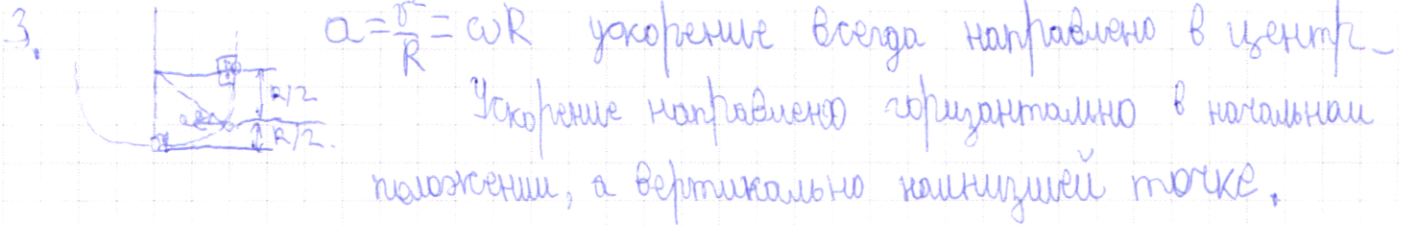 3. a = v²/R = ωR ускорение всегда направлено в центр_
R/2 Ускорение направлено горизантально в начальном
R/2. положении, а вертикально наинизшей точке.